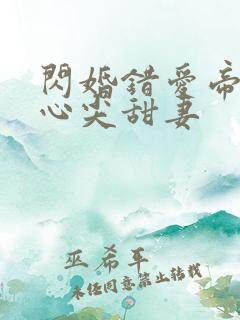 閃婚錯愛帝
心尖甜妻
巫希平
未經同意禁止轉載